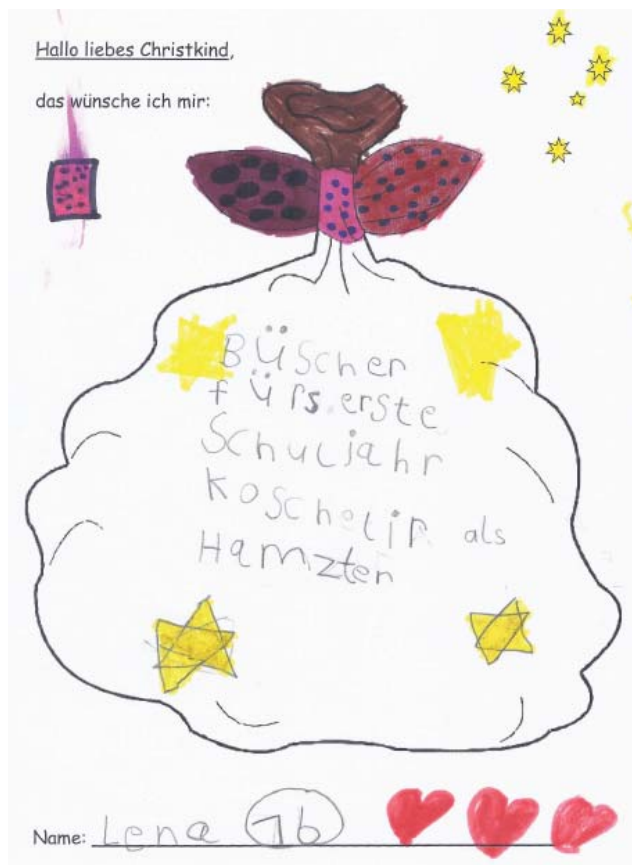 Hallo liebes Christkind,
das wünsche ich mir:
BÜScher
fÜrs.erste
Schuljahr
Koschelir als
Hamzten
Name: Lena 1b